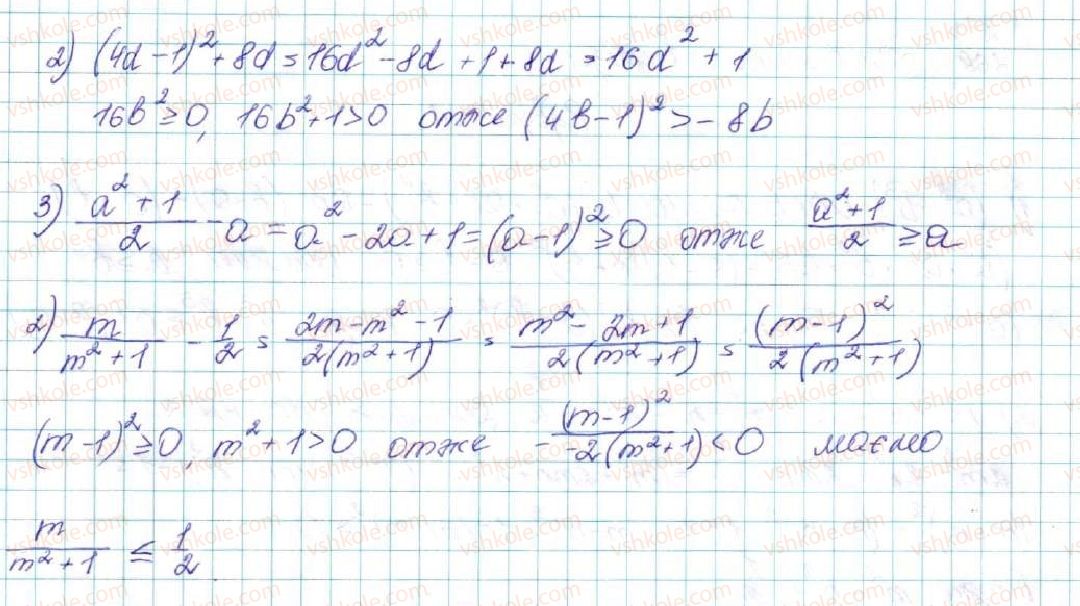 2) (4d-1)² + 8d = 16d² - 8d + 1 + 8d = 16d² + 1
16b² ≥ 0, 16b² + 1 > 0 отже (4b-1)² > - 8b
3) (a² + 1)/2 - a = a² - 2a + 1 = (a-1)² ≥ 0 отже (a² + 1)/2 ≥ a
2) m/(m² + 1) - 1/2 = (2m - m² - 1)/(2(m² + 1)) = (m² - 2m + 1)/(2(m² + 1)) = (m-1)²/(2(m² + 1))
(m-1)² ≥ 0, m² + 1 > 0 отже - (m-1)²/(-2(m² + 1)) < 0 маємо
m/(m² + 1) ≤ 1/2